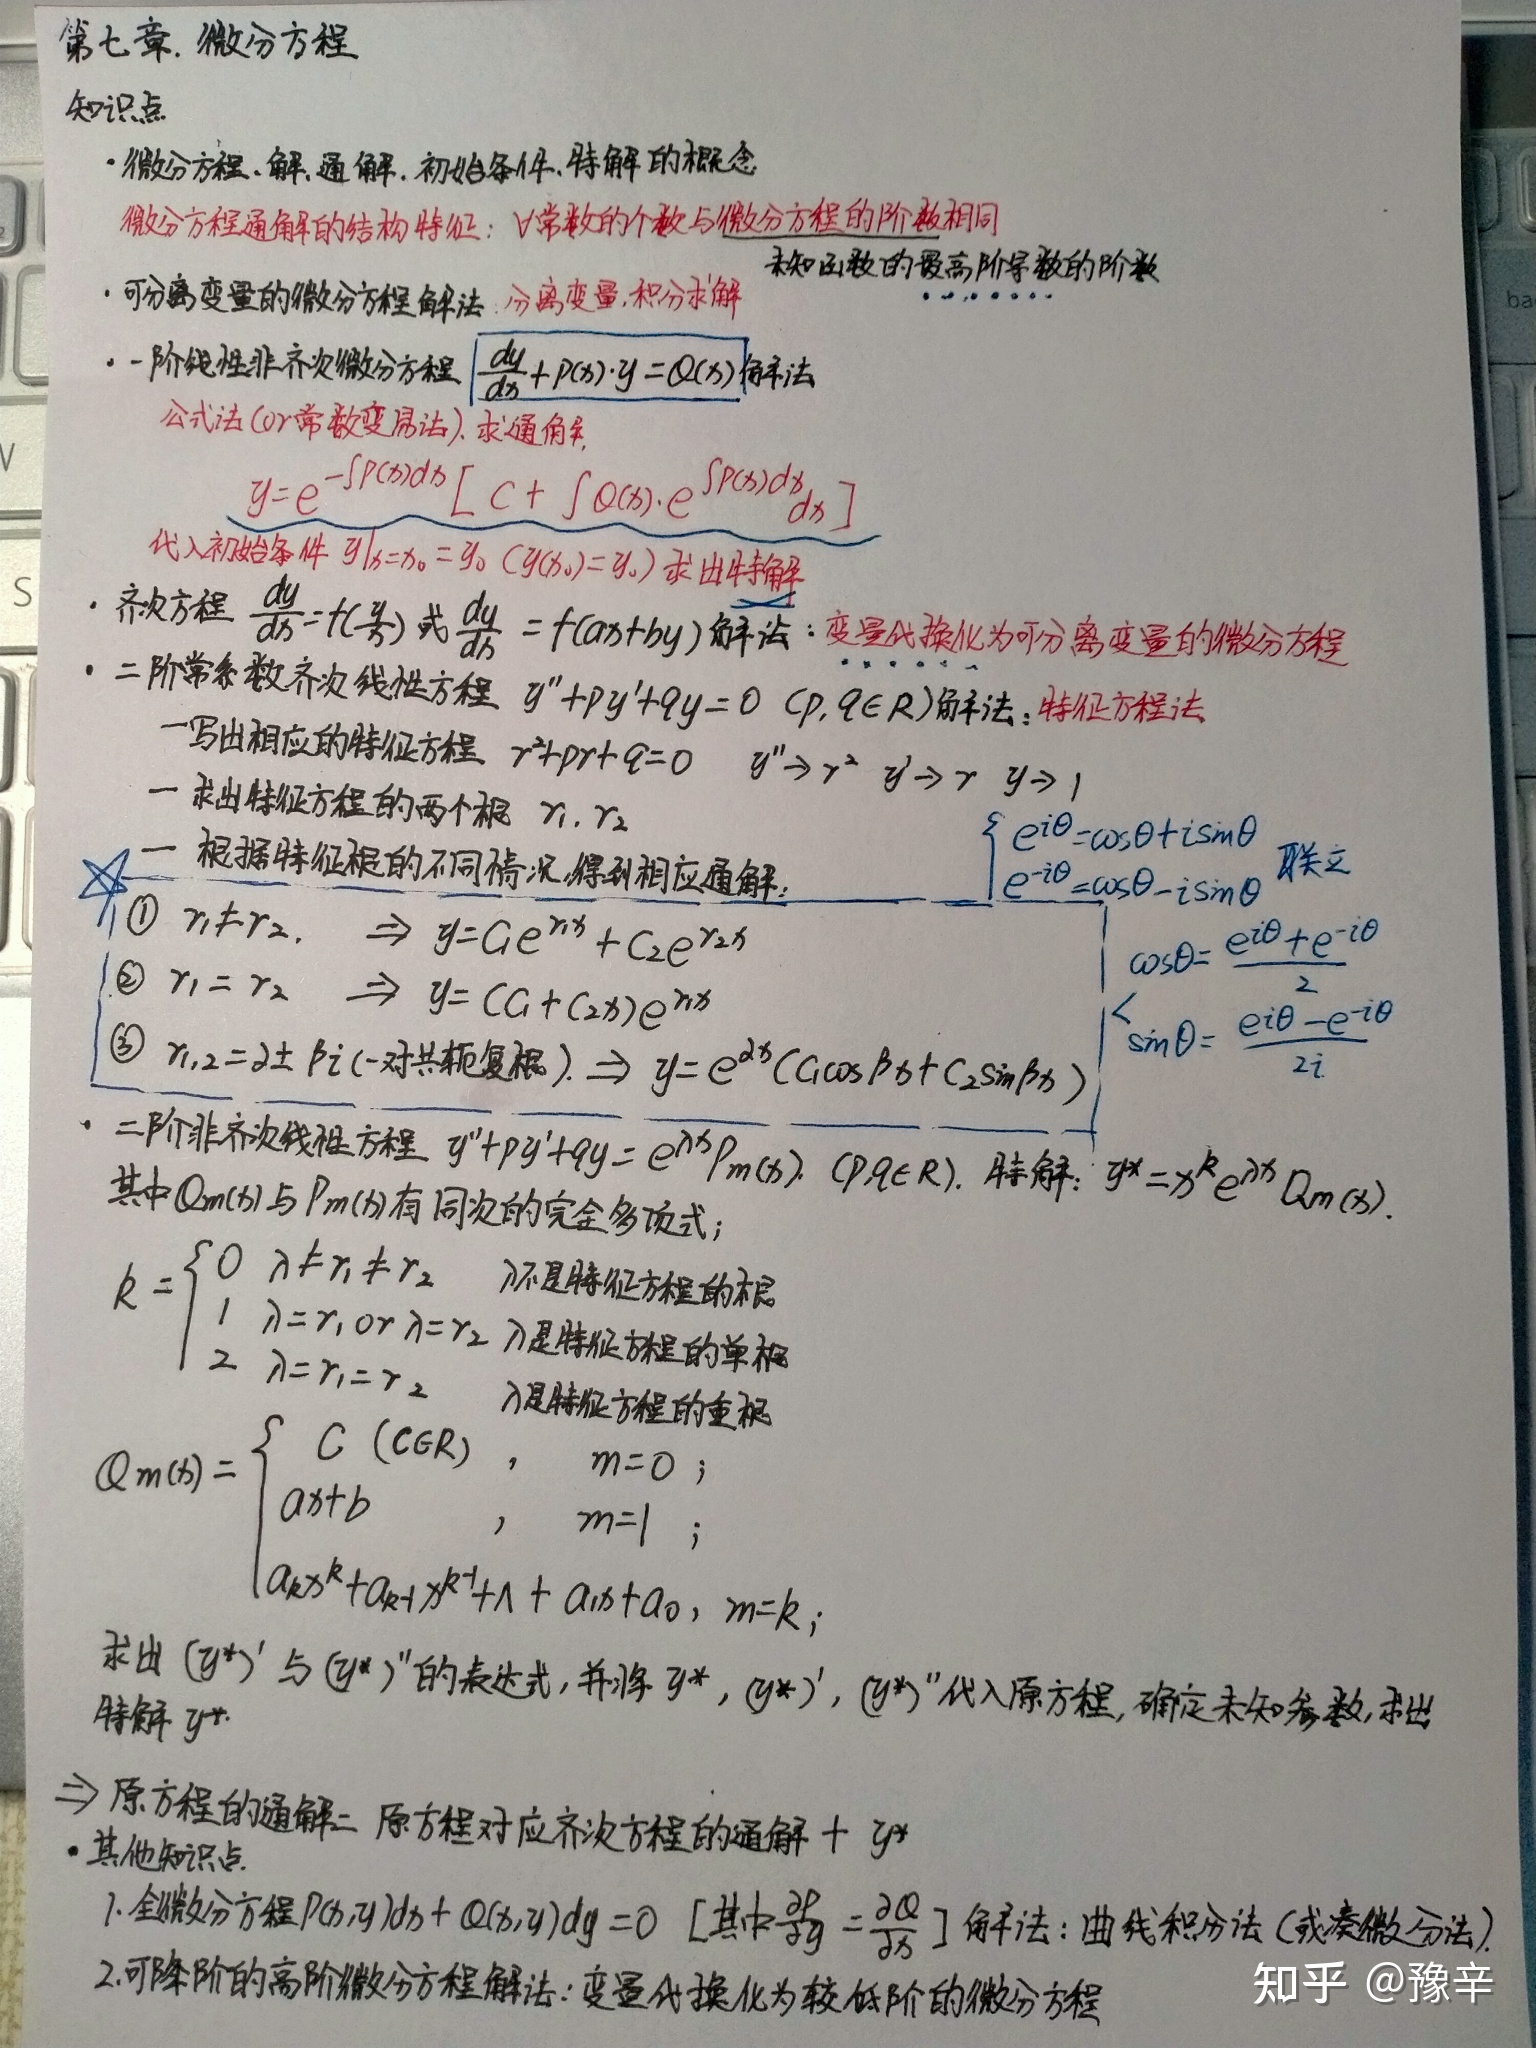 第七章. 微分方程
知识点
· 微分方程、解、通解、初始条件、特解的概念
微分方程通解的结构特征: ∀常数的个数与微分方程的阶数相同
未知函数的最高阶导数的阶数
· 可分离变量的微分方程解法: 分离变量,积分求解
· 一阶线性非齐次微分方程 dy/dx + P(x)·y = Q(x) 解法
公式法(or常数变易法). 求通解,
y = e^{-∫P(x)dx} [ C + ∫Q(x)·e^{∫P(x)dx} dx ]
代入初始条件 y|x=x₀ = y₀ (y(x₀)=y₀) 求出特解
· 齐次方程 dy/dx = f(y/x) 或 dy/dx = f(ax+by) 解法: 变量代换化为可分离变量的微分方程
· 二阶常系数齐次线性方程 y''+py'+qy=0 (p,q∈R) 解法: 特征方程法
一写出相应的特征方程 r²+pr+q=0 y''→r² y'→r y→1
一 求出特征方程的两个根 r₁, r₂
一 根据特征根的不同情况,得到相应通解:
{ e^{iθ}=cosθ+isinθ
e^{-iθ}=cosθ-isinθ 联立
cosθ= (e^{iθ}+e^{-iθ})/2
sinθ= (e^{iθ}-e^{-iθ})/2i
① r₁≠r₂. ⇒ y=C₁e^{r₁x}+C₂e^{r₂x}
② r₁=r₂ ⇒ y=(C₁+C₂x)e^{r₁x}
③ r₁,₂=α±βi (一对共轭复根). ⇒ y=e^{αx}(C₁cosβx+C₂sinβx)
· 二阶非齐次线性方程 y''+py'+qy=e^{λx}Pm(x). (p,q∈R). 特解: y*=x^k e^{λx}Qm(x).
其中Qm(x)与Pm(x)有同次的完全多项式;
k = { 0 λ≠r₁≠r₂ λ不是特征方程的根
1 λ=r₁ or λ=r₂ λ是特征方程的单根
2 λ=r₁=r₂ λ是特征方程的重根
Qm(x) = { C (C∈R) , m=0 ;
ax+b , m=1 ;
a_k x^k+a_{k-1}x^{k-1}+Λ+a₁x+a₀, m=k;
求出 (y*)' 与 (y*)''的表达式,并将 y*, (y*)', (y*)''代入原方程,确定未知参数,求出
特解 y*.
⇒ 原方程的通解= 原方程对应齐次方程的通解 + y*
· 其他知识点.
1. 全微分方程P(x,y)dx+Q(x,y)dy=0 [其中 ∂P/∂y = ∂Q/∂x ] 解法: 曲线积分法(或凑微分法).
2. 可降阶的高阶微分方程解法: 变量代换化为较低阶的微分方程
知乎 @豫辛